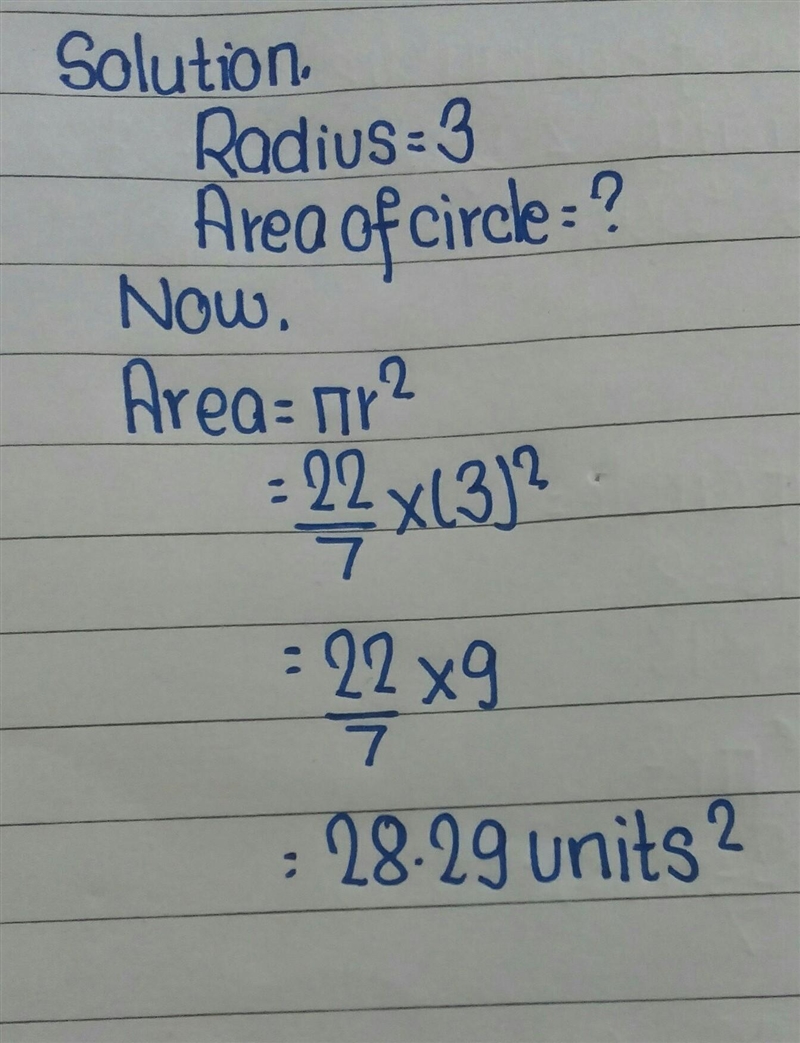 Solution.
Radius=3
Area of circle=?
Now.
Area=πr²
=22/7×(3)²
=22/7×9
=28.29 units²